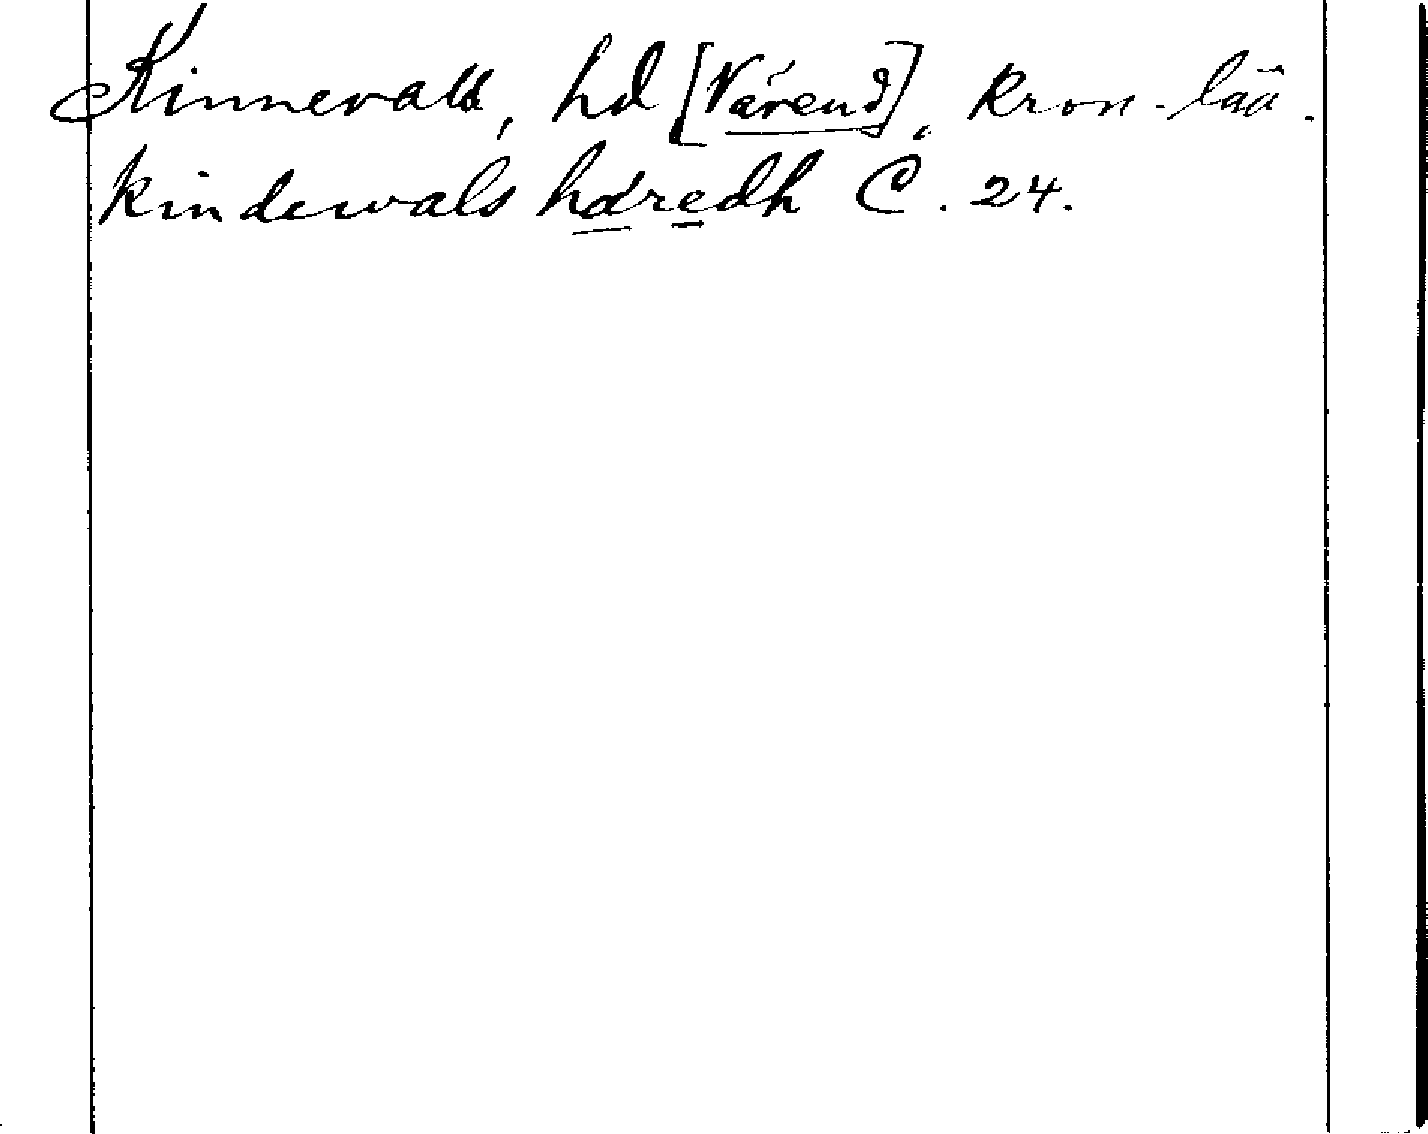 Kinnevald, hd [Värend], Kron-län.
Kindewals hæredh C. 24.